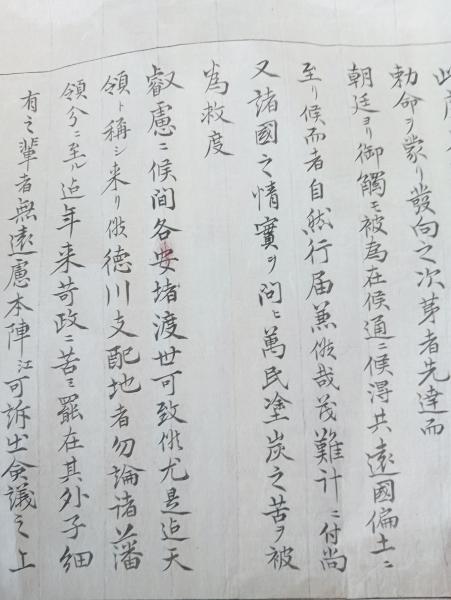 勅命ヲ蒙リ發向之次第者先達而
朝廷ヨリ御觸モ被為在候通ニ候得共遠國偏土ニ
至リ候而者自然行届兼候哉茂難計ニ付尚
又諸國之情實ヲ問ヒ萬民塗炭之苦ヲ被
為救度
叡慮ニ候間各安堵渡世可致候尤是迠天
領ト稱シ来リ候徳川支配地者勿論諸藩
領分ニ至ル迠年来苛政ニ苦ミ罷在其外子細
有之輩者無遠慮本陣江可訴出僉議之上